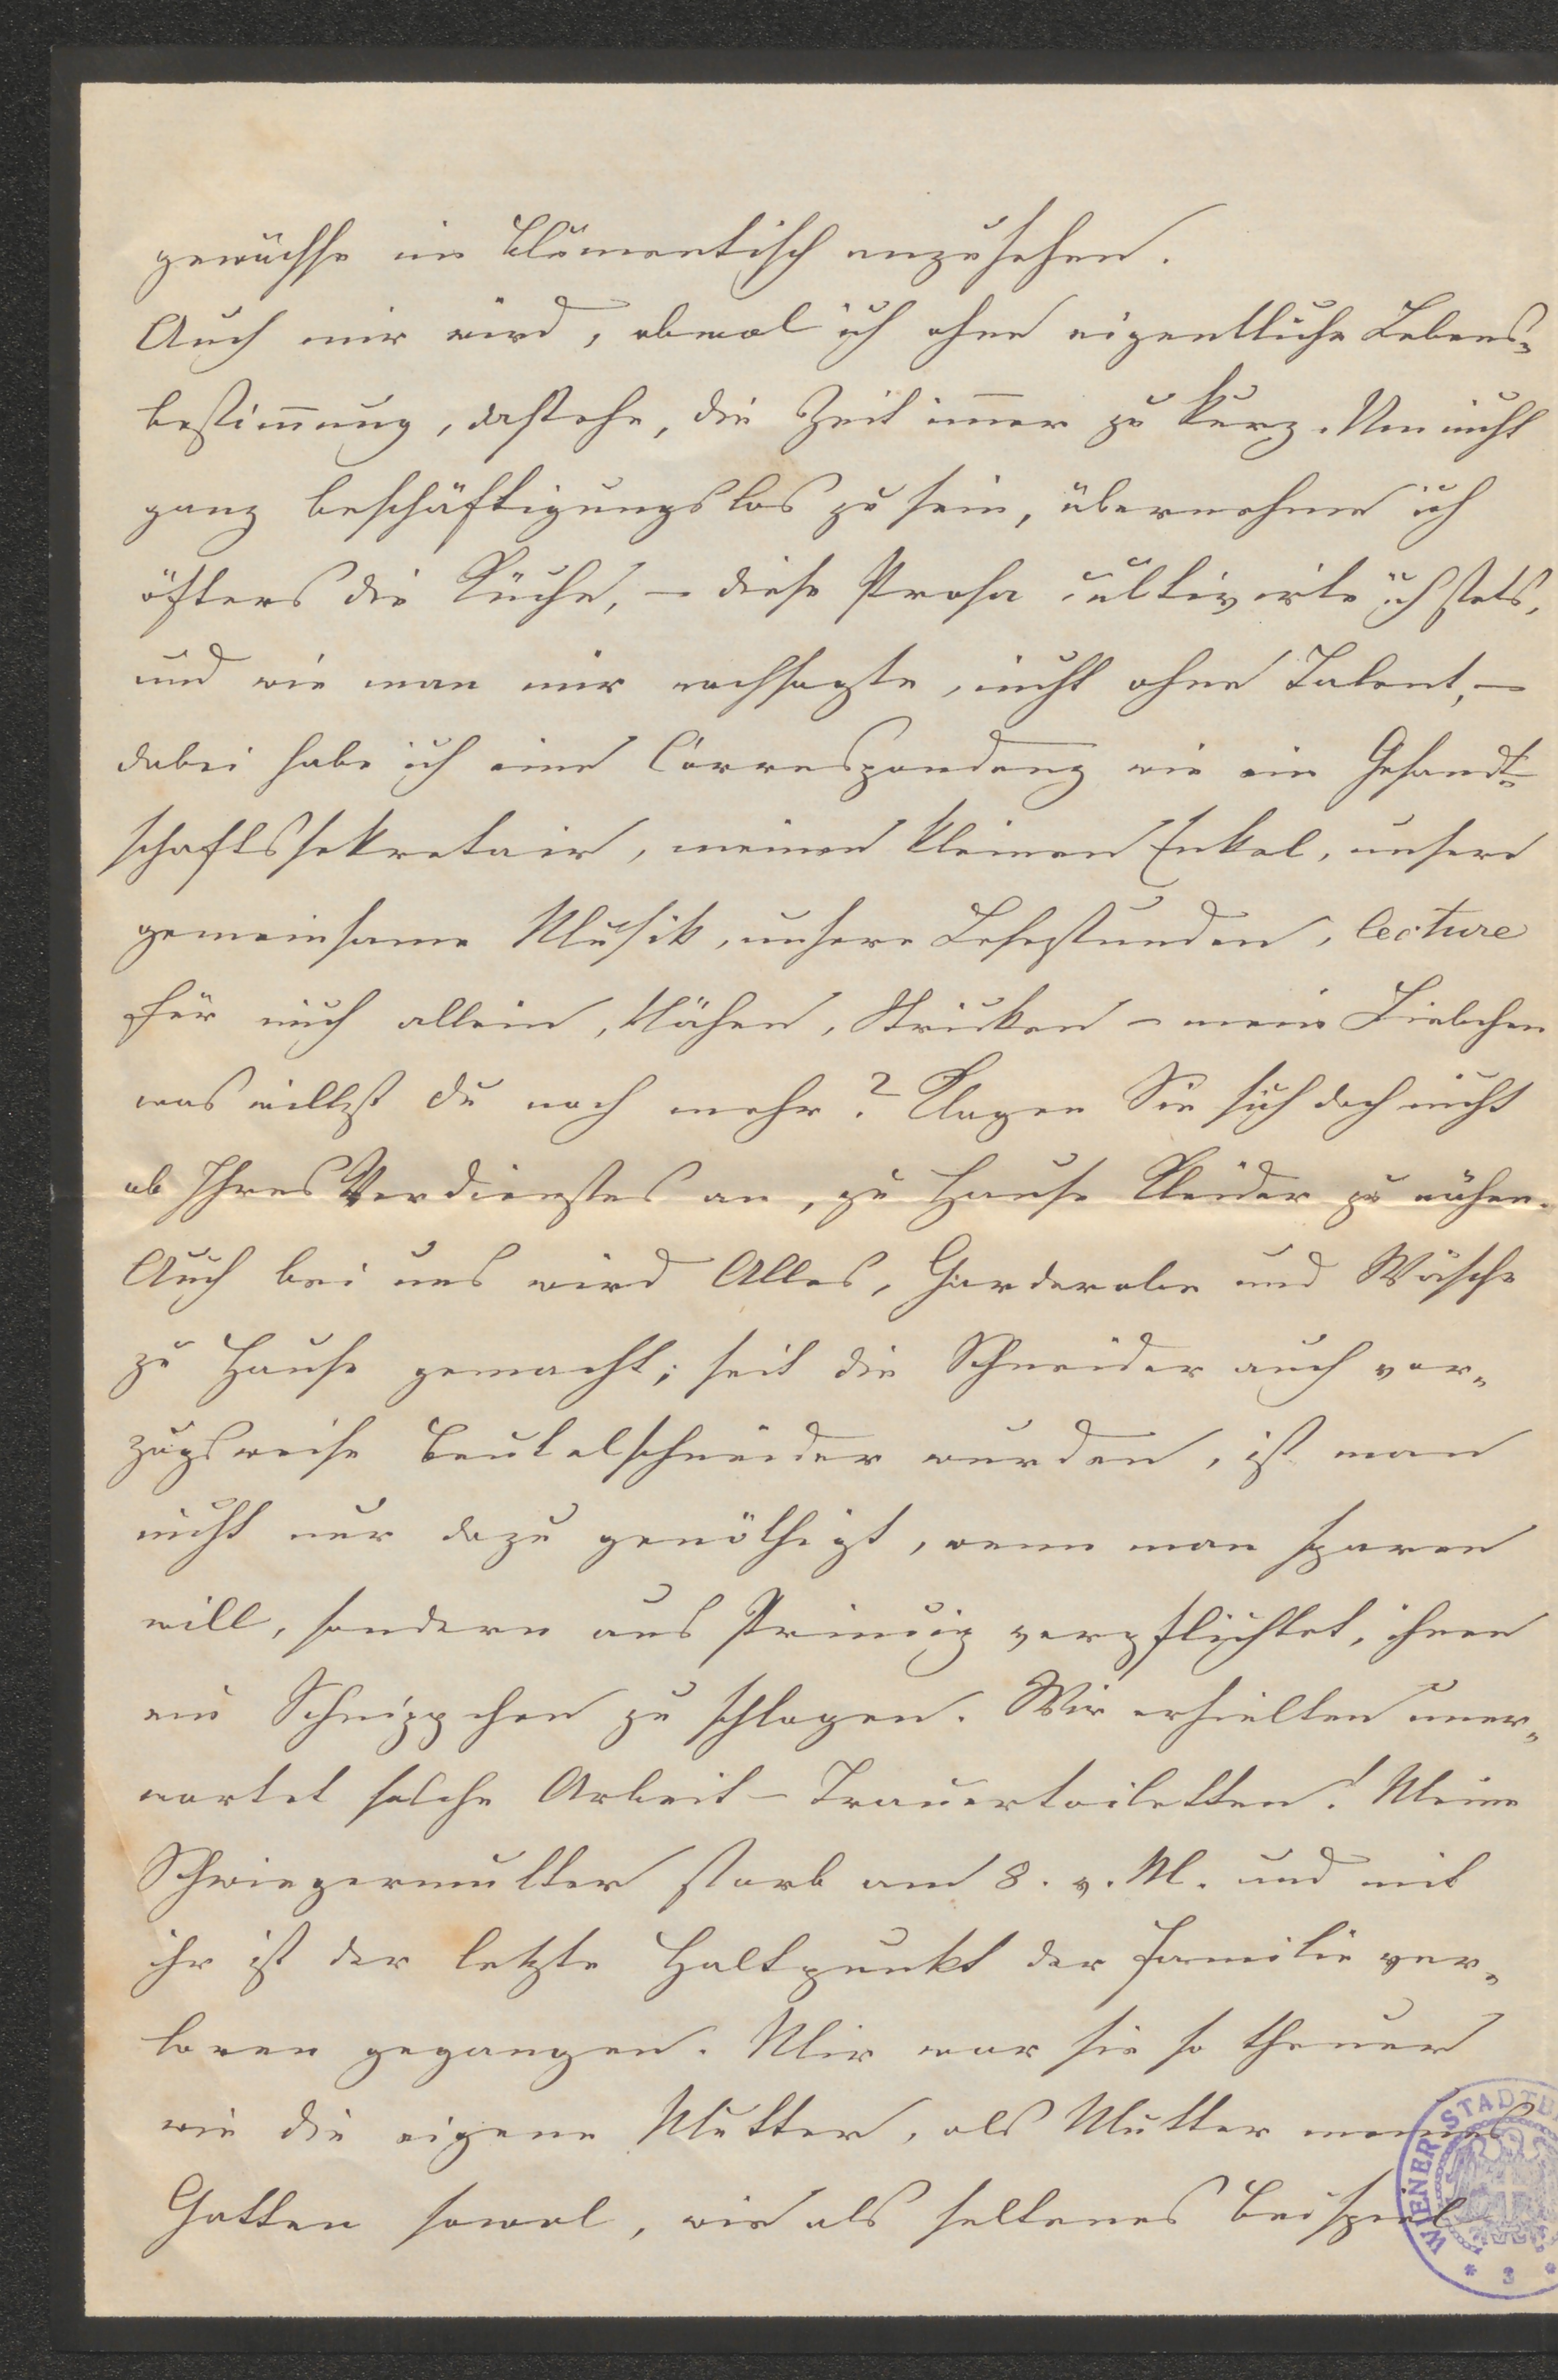 gewächse im Blumentisch anzusehen.
Auch mir wird, obwol ich ohne eigentliche Lebens-
bestim̄ung, dastehe, die Zeit im̄er zu kurz. Um nicht
ganz beschäftigungslos zu sein, übernehme ich
öfters die Küche, – diese Prosa cultivirte ich stets,
und wie man mir nachsagte, nicht ohne Talent, –
dabei habe ich eine Correspondenz wie ein Gesandt-
schaftssekretair, meinen kleinen Enkel, unsere
gemeinsame Musik, unsere Lesestunden, lecture
für mich allein, Nähen, Stricken – mein Liebchen
was willst du noch mehr? Klagen Sie sich doch nicht
ob Ihres Verdienstes an, zu Hause Kleider zu nähen.
Auch bei uns wird Alles, Garderobe und Wäsche
zu Hause gemacht; seit die Schneider auch vor-
zugsweise Beutelschneider wurden, ist man
nicht nur dazu genöthigt, wenn man sparen
will, sondern aus Princip verpflichtet, ihnen
ein Schnippchen zu schlagen. Wir erhielten uner-
wartet solche Arbeit – Trauertoiletten! Meine
Schwiegermutter starb am 8. v. M. und mit
ihr ist der letzte Haltpunkt der Familie ver-
loren gegangen. Mir war sie so theuer
wie die eigene Mutter, als Mutter meines
Gatten sowol, wie als seltenes Beispiel
WIENER STADT
3